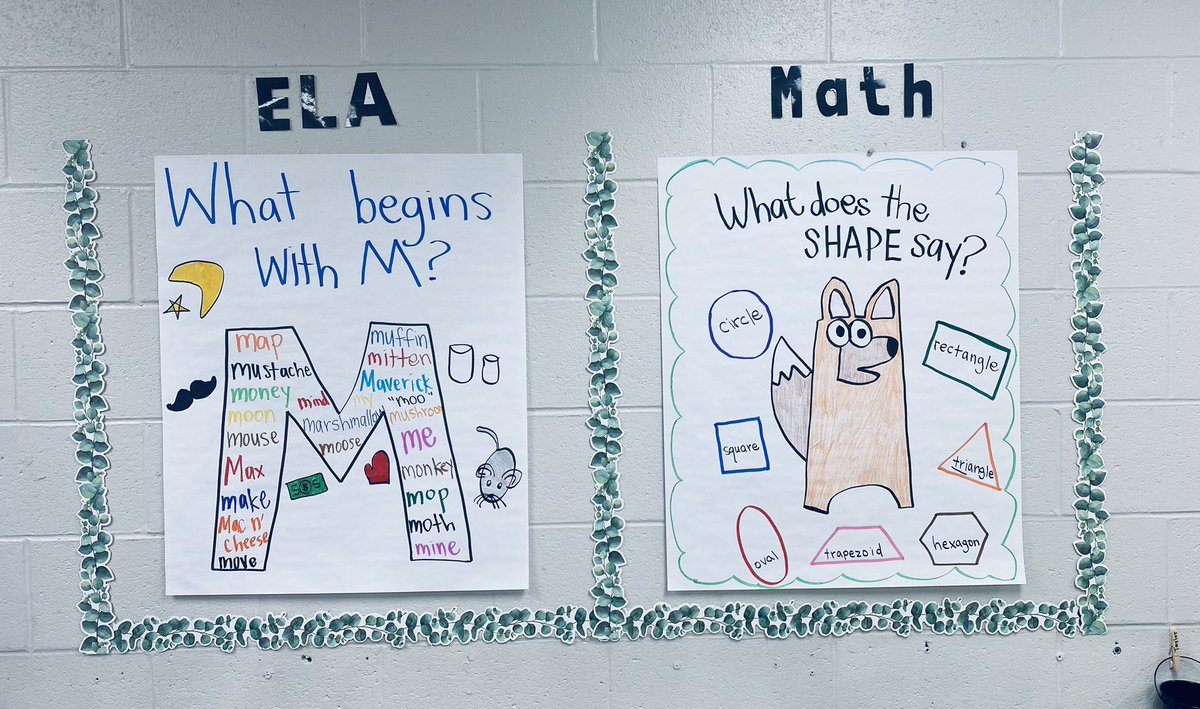 ELA
What begins
With M?
map
mustache
money
moon
mouse
Max
make
Mac n'
cheese
move
mind
my
marshmallow
moose
muffin
mitten
Maverick
"moo"
mushroom
me
monkey
mop
moth
mine
$
Math
What does the
SHAPE say?
circle
rectangle
square
triangle
oval
trapezoid
hexagon